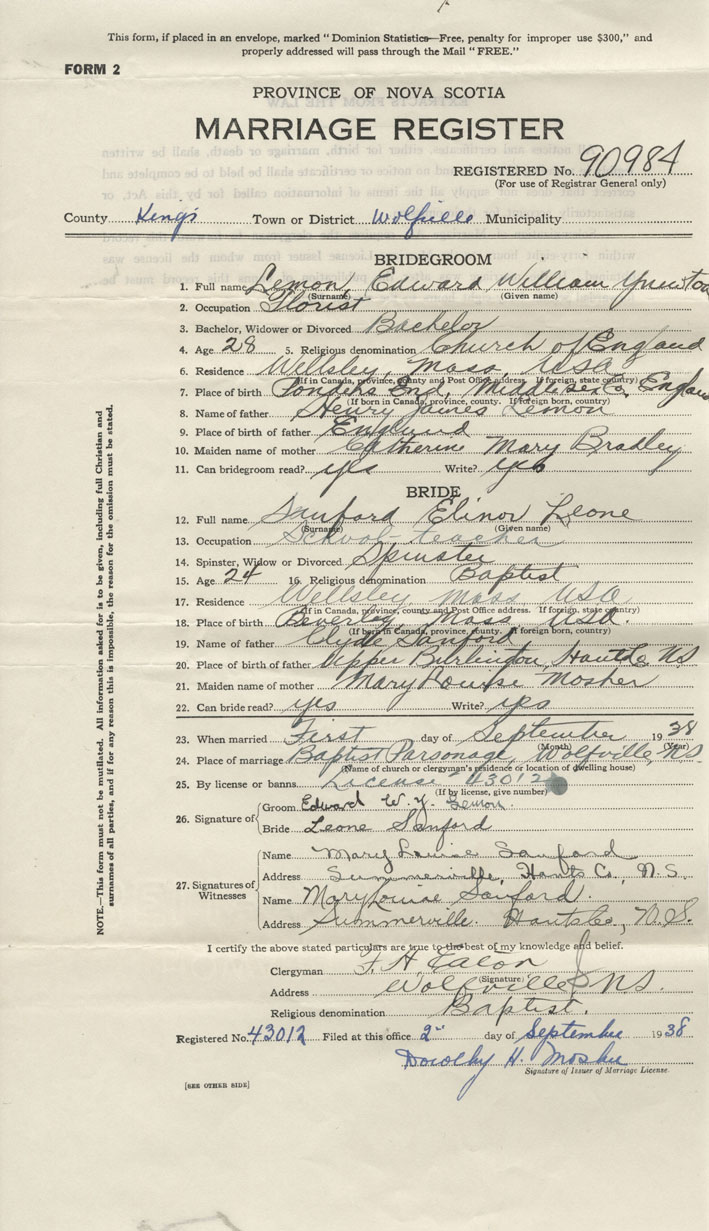 This form, if placed in an envelope, marked "Dominion Statistics—Free, penalty for improper use $300," and
properly addressed will pass through the Mail "FREE."
FORM 2
PROVINCE OF NOVA SCOTIA
MARRIAGE REGISTER
REGISTERED No. 90984
(For use of Registrar General only)
County Kings Town or District Wolfville Municipality
BRIDEGROOM
1. Full name Lemon, Edward William
(Surname) (Given name)
2. Occupation Florist
3. Bachelor, Widower or Divorced Bachelor
4. Age 28 5. Religious denomination Church of England
6. Residence Wellsley, Mass, USA
(If in Canada, province, county and Post Office address. If foreign, state country)
7. Place of birth Ponders End, Middlesex Co. England
(If born in Canada, province, county. If foreign born, country)
8. Name of father Henry James Lemon
9. Place of birth of father England
10. Maiden name of mother Catherine Mary Bradley
11. Can bridegroom read? yes Write? yes
BRIDE
12. Full name Sanford Elinor Leone
(Surname) (Given name)
13. Occupation School-teacher
14. Spinster, Widow or Divorced Spinster
15. Age 24 16. Religious denomination Baptist
17. Residence Wellsley, Mass USA
(If in Canada, province, county and Post Office address. If foreign, state country)
18. Place of birth Beverley, Mass, USA.
(If born in Canada, province, county. If foreign born, country)
19. Name of father Clyde Sanford
20. Place of birth of father Upper Burlington, Hants Co NS
21. Maiden name of mother Mary Louise Mosher
22. Can bride read? yes Write? yes
23. When married First day of September 1938
(Month) (Year)
24. Place of marriage Baptist Parsonage, Wolfville, NS
(Name of church or clergyman's residence or location of dwelling house)
25. By license or banns License 43012
(If by license, give number)
26. Signature of Groom Edward W. Y. Lemon.
Bride Leone Sanford
27. Signatures of Witnesses
Name Mary Louise Sanford
Address Summerville, Hants Co., N.S.
Name Mary Louise Sanford.
Address Summerville. Hants Co, N.S.
I certify the above stated particulars are true to the best of my knowledge and belief.
Clergyman F. H. Eaton
(Signature)
Address Wolfville NS.
Religious denomination Baptist.
Registered No. 43012 Filed at this office 2" day of September 1938
Dorothy H. Mosher
Signature of Issuer of Marriage License.
[SEE OTHER SIDE]
NOTE.—This form must not be mutilated. All information asked for is to be given, including full Christian and
surnames of all parties, and if for any reason this is impossible, the reason for the omission must be stated.